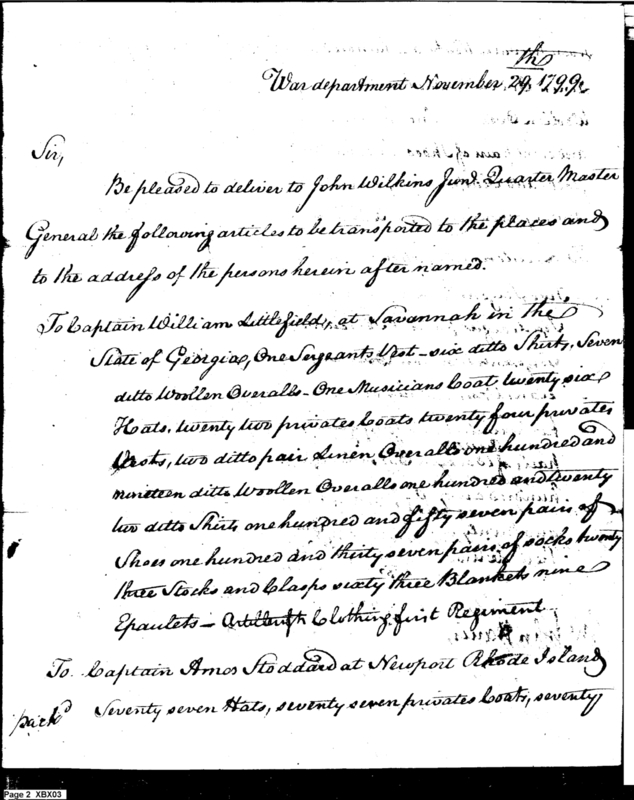 War department November 29th 1799
Sir,
Be pleased to deliver to John Wilkins Junr. Quarter Master
General the following articles to be transported to the places and
to the address of the persons herein after named.
To Captain William Littlefield, at Savannah in the
State of Georgia, One Sergeants Vest - six ditto Shirts, Seven
ditto Woollen Overalls - One Musicians Coat twenty six
Hats, twenty two privates Coats twenty four privates
Vests, two ditto pair Linen Overalls one hundred and
nineteen ditto Woollen Overalls one hundred and twenty
two ditto Shirts one hundred and fifty seven pairs of
Shoes one hundred and thirty seven pairs of socks twenty
three Stocks and Clasps sixty three Blankets nine
Epaulets - Artillerist Clothing first Regiment
To Captain Amos Stoddard at Newport Rhode Island
pack'd Seventy seven Hats, seventy seven privates Coats, seventy
Page 2 XBX03